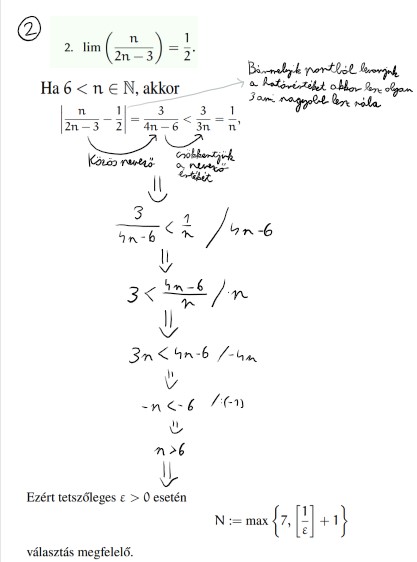 ②
2. lim (n/(2n − 3)) = 1/2.
Ha 6 < n ∈ ℕ, akkor
Bármelyik pontból levonjuk
a határértéket akkor lesz olyan
ami nagyobb lesz nála
|n/(2n − 3) − 1/2| = 3/(4n − 6) < 3/(3n) = 1/n,
Közös nevező
csökkentjük
a nevező
értékét
⇓
3/(4n-6) < 1/n /4n-6
⇓
3 < (4n-6)/n /·n
⇓
3n < 4n-6 /-4n
⇓
-n < -6 /:(-1)
⇓
n > 6
⇓
Ezért tetszőleges ε > 0 esetén
N := max {7, [1/ε] + 1}
választás megfelelő.